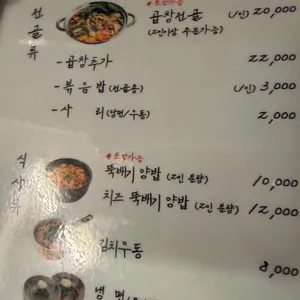 전골류
*포장가능
곱창전골 (1인) 20,000
(2인이상 주문가능)
- 곱창추가 22,000
- 볶음밥 (전골용) (1인) 3,000
- 사리 (라면/우동) 2,000
식사류
*포장가능
뚝배기 양밥 (2인 분량) 10,000
치즈 뚝배기 양밥 (2인 분량) 12,000
김치우동 8,000
냉면